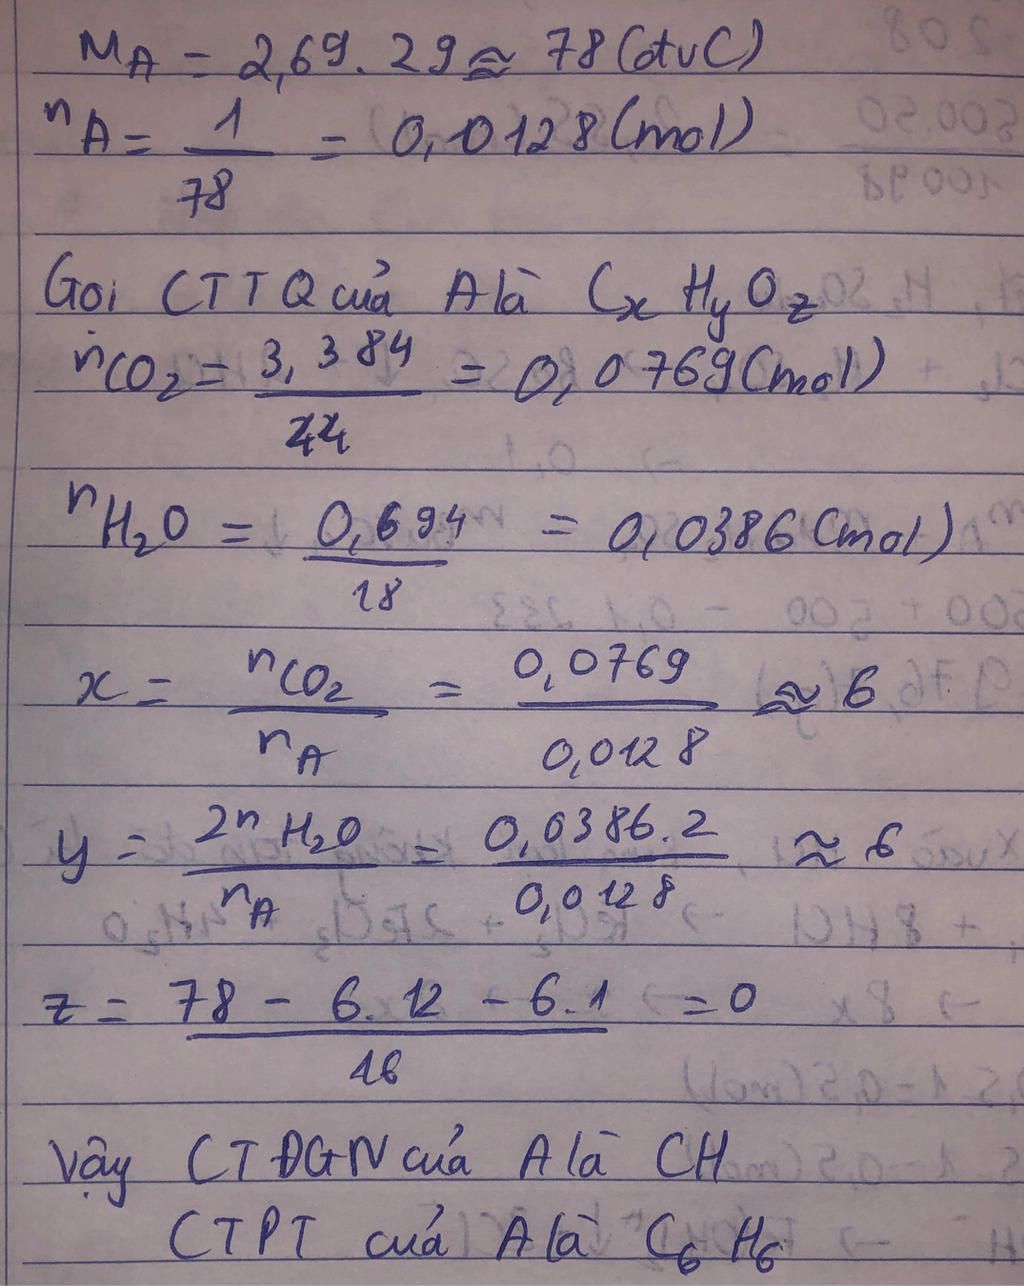 M_A = 2,69 . 29 ≈ 78 (đvC)
n_A = 1/78 = 0,0128 (mol)
Gọi CTTQ của A là CxHyOz
nCO2 = 3,384/44 = 0,0769 (mol)
nH2O = 0,694/18 = 0,0386 (mol)
x = nCO2/nA = 0,0769/0,0128 ≈ 6
y = 2nH2O/nA = 0,0386.2/0,0128 ≈ 6
z = 78 - 6.12 - 6.1/16 = 0
Vậy CTĐGN của A là CH
CTPT của A là C6H6